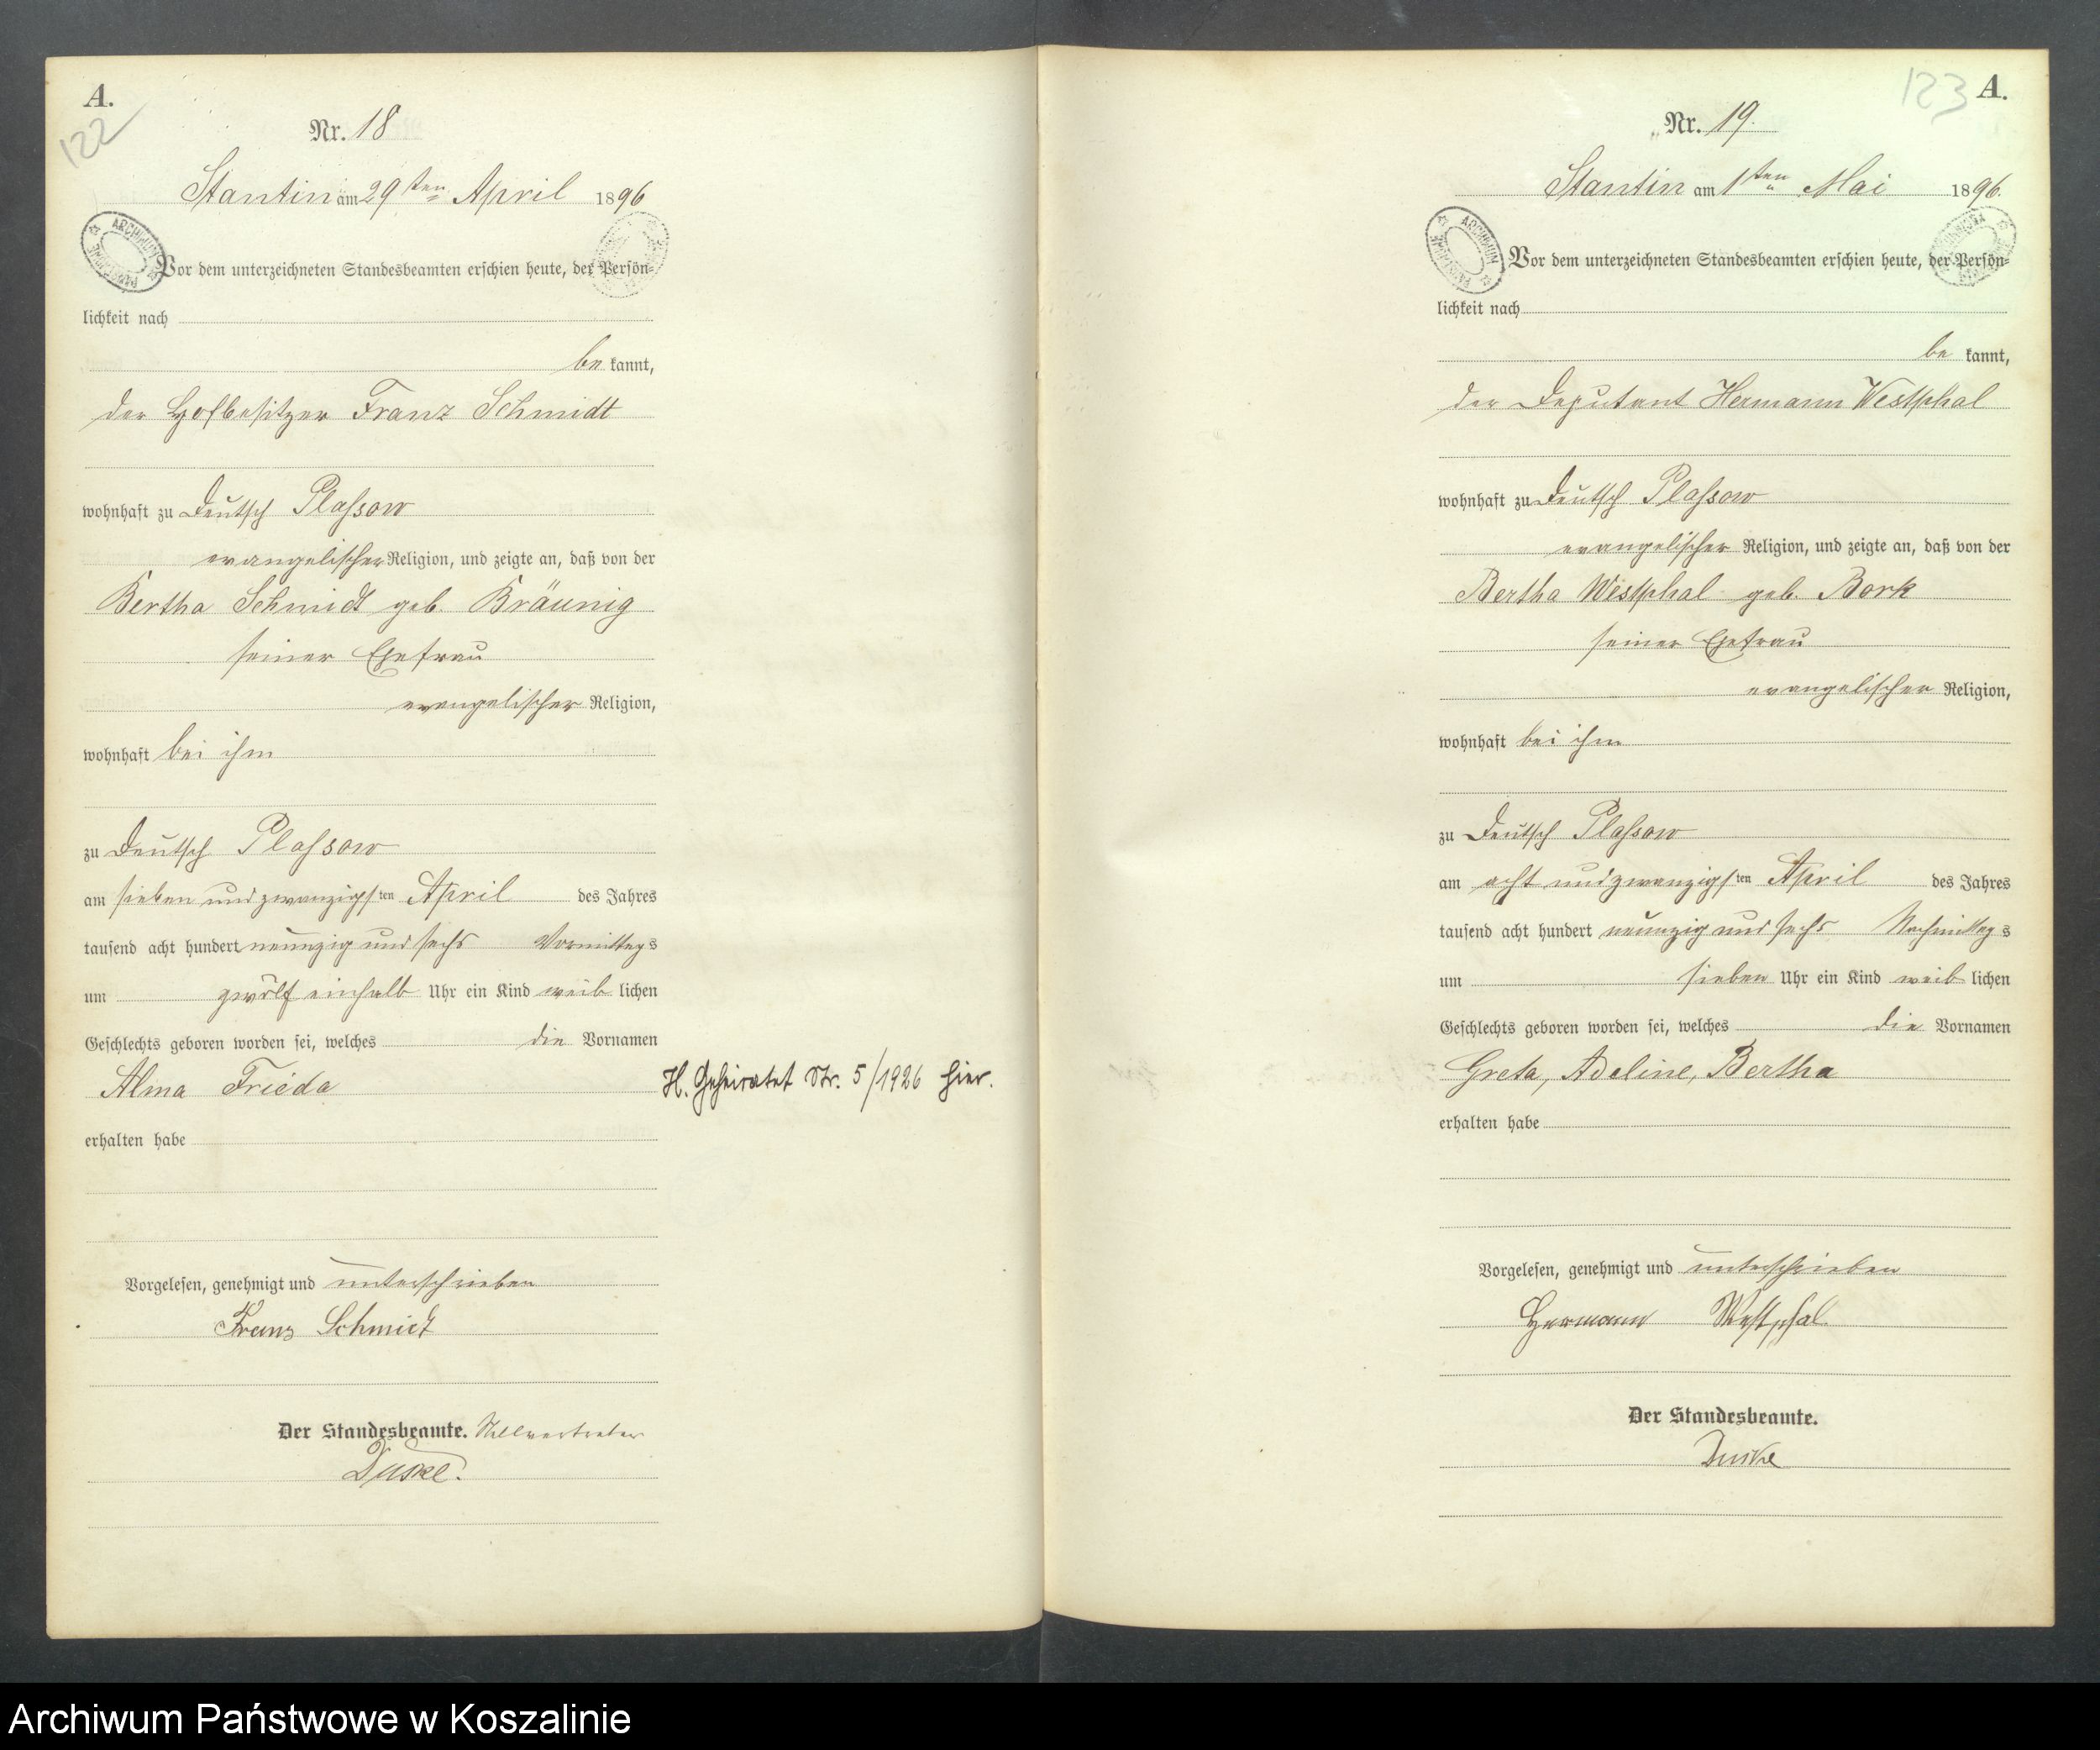 A.
122
Nr. 18
Stantin am 29ten April 1896
Vor dem unterzeichneten Standesbeamten erschien heute, der Persön-
lichkeit nach
be kannt,
der Hofbesitzer Franz Schmidt
wohnhaft zu Deutsch Plassow
evangelischer Religion, und zeigte an, daß von der
Bertha Schmidt geb. Bräunig
seiner Ehefrau
evangelischer Religion,
wohnhaft bei ihm
zu Deutsch Plassow
am sieben und zwanzigsten April des Jahres
tausend acht hundert neunzig und sechs Vormittags
um zwölf einhalb Uhr ein Kind weib lichen
Geschlechts geboren worden sei, welches die Vornamen
Alma Frieda
H. Geheiratet Nr. 5/1926 hier.
erhalten habe
Vorgelesen, genehmigt und unterschrieben
Franz Schmidt
Der Standesbeamte. Stellvertreter
Duske.
123 A.
Nr. 19.
Stantin am 1ten Mai 1896.
ARCHIWUM
Vor dem unterzeichneten Standesbeamten erschien heute, der Persön-
lichkeit nach
be kannt,
der Deputant Hermann Westphal
wohnhaft zu Deutsch Plassow
evangelischer Religion, und zeigte an, daß von der
Bertha Westphal geb. Bork
seiner Ehefrau
evangelischer Religion,
wohnhaft bei ihm
zu Deutsch Plassow
am acht und zwanzigsten April des Jahres
tausend acht hundert neunzig und sechs Nachmittags
um sieben Uhr ein Kind weib lichen
Geschlechts geboren worden sei, welches die Vornamen
Greta, Adeline, Bertha
erhalten habe
Vorgelesen, genehmigt und unterschrieben
Hermann Westphal
Der Standesbeamte.
Duske
Archiwum Państwowe w Koszalinie